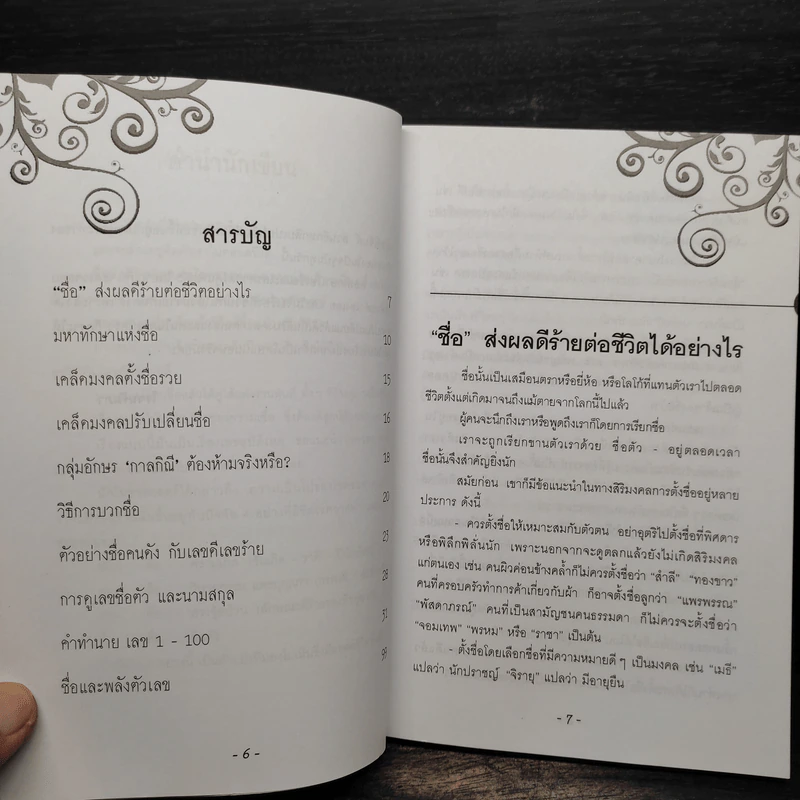 สารบัญ
“ชื่อ” ส่งผลดีร้ายต่อชีวิตอย่างไร 7
มหาทักษาแห่งชื่อ 10
เคล็ดมงคลตั้งชื่อรวย 15
เคล็ดมงคลปรับเปลี่ยนชื่อ 16
กลุ่มอักษร ‘กาลกิณี’ ต้องห้ามจริงหรือ? 18
วิธีการบวกชื่อ 20
ตัวอย่างชื่อคนดัง กับเลขดีเลขร้าย 23
การดูเลขชื่อตัว และนามสกุล 28
คำทำนาย เลข 1 - 100 31
ชื่อและพลังตัวเลข 99
- 6 -
“ชื่อ” ส่งผลดีร้ายต่อชีวิตได้อย่างไร
ชื่อนั้นเป็นเสมือนตราหรือยี่ห้อ หรือโลโก้ที่แทนตัวเราไปตลอด
ชีวิตตั้งแต่เกิดมาจนถึงแม้ตายจากโลกนี้ไปแล้ว
ผู้คนจะนึกถึงเราหรือพูดถึงเราก็โดยการเรียกชื่อ
เราจะถูกเรียกขานตัวเราด้วย ชื่อตัว - อยู่ตลอดเวลา
ชื่อนั้นจึงสำคัญยิ่งนัก
สมัยก่อน เขาก็มีข้อแนะนำในทางสิริมงคลการตั้งชื่ออยู่หลาย
ประการ ดังนี้
- ควรตั้งชื่อให้เหมาะสมกับตัวตน อย่าอุตริไปตั้งชื่อที่พิศดาร
หรือพิลึกพิลั่นนัก เพราะนอกจากจะดูตลกแล้วยังไม่เกิดสิริมงคล
แก่ตนเอง เช่น คนผิวค่อนข้างคล้ำก็ไม่ควรตั้งชื่อว่า “สำลี” “ทองขาว”
คนที่ครอบครัวทำการค้าเกี่ยวกับผ้า ก็อาจตั้งชื่อลูกว่า “แพรพรรณ”
“พัสดาภรณ์” คนที่เป็นสามัญชนคนธรรมดา ก็ไม่ควรจะตั้งชื่อว่า
“จอมเทพ” “พรหม” หรือ “ราชา” เป็นต้น
- ตั้งชื่อโดยเลือกชื่อที่มีความหมายดี ๆ เป็นมงคล เช่น “เมธี”
แปลว่า นักปราชญ์ “จิรายุ” แปลว่า มีอายุยืน
- 7 -